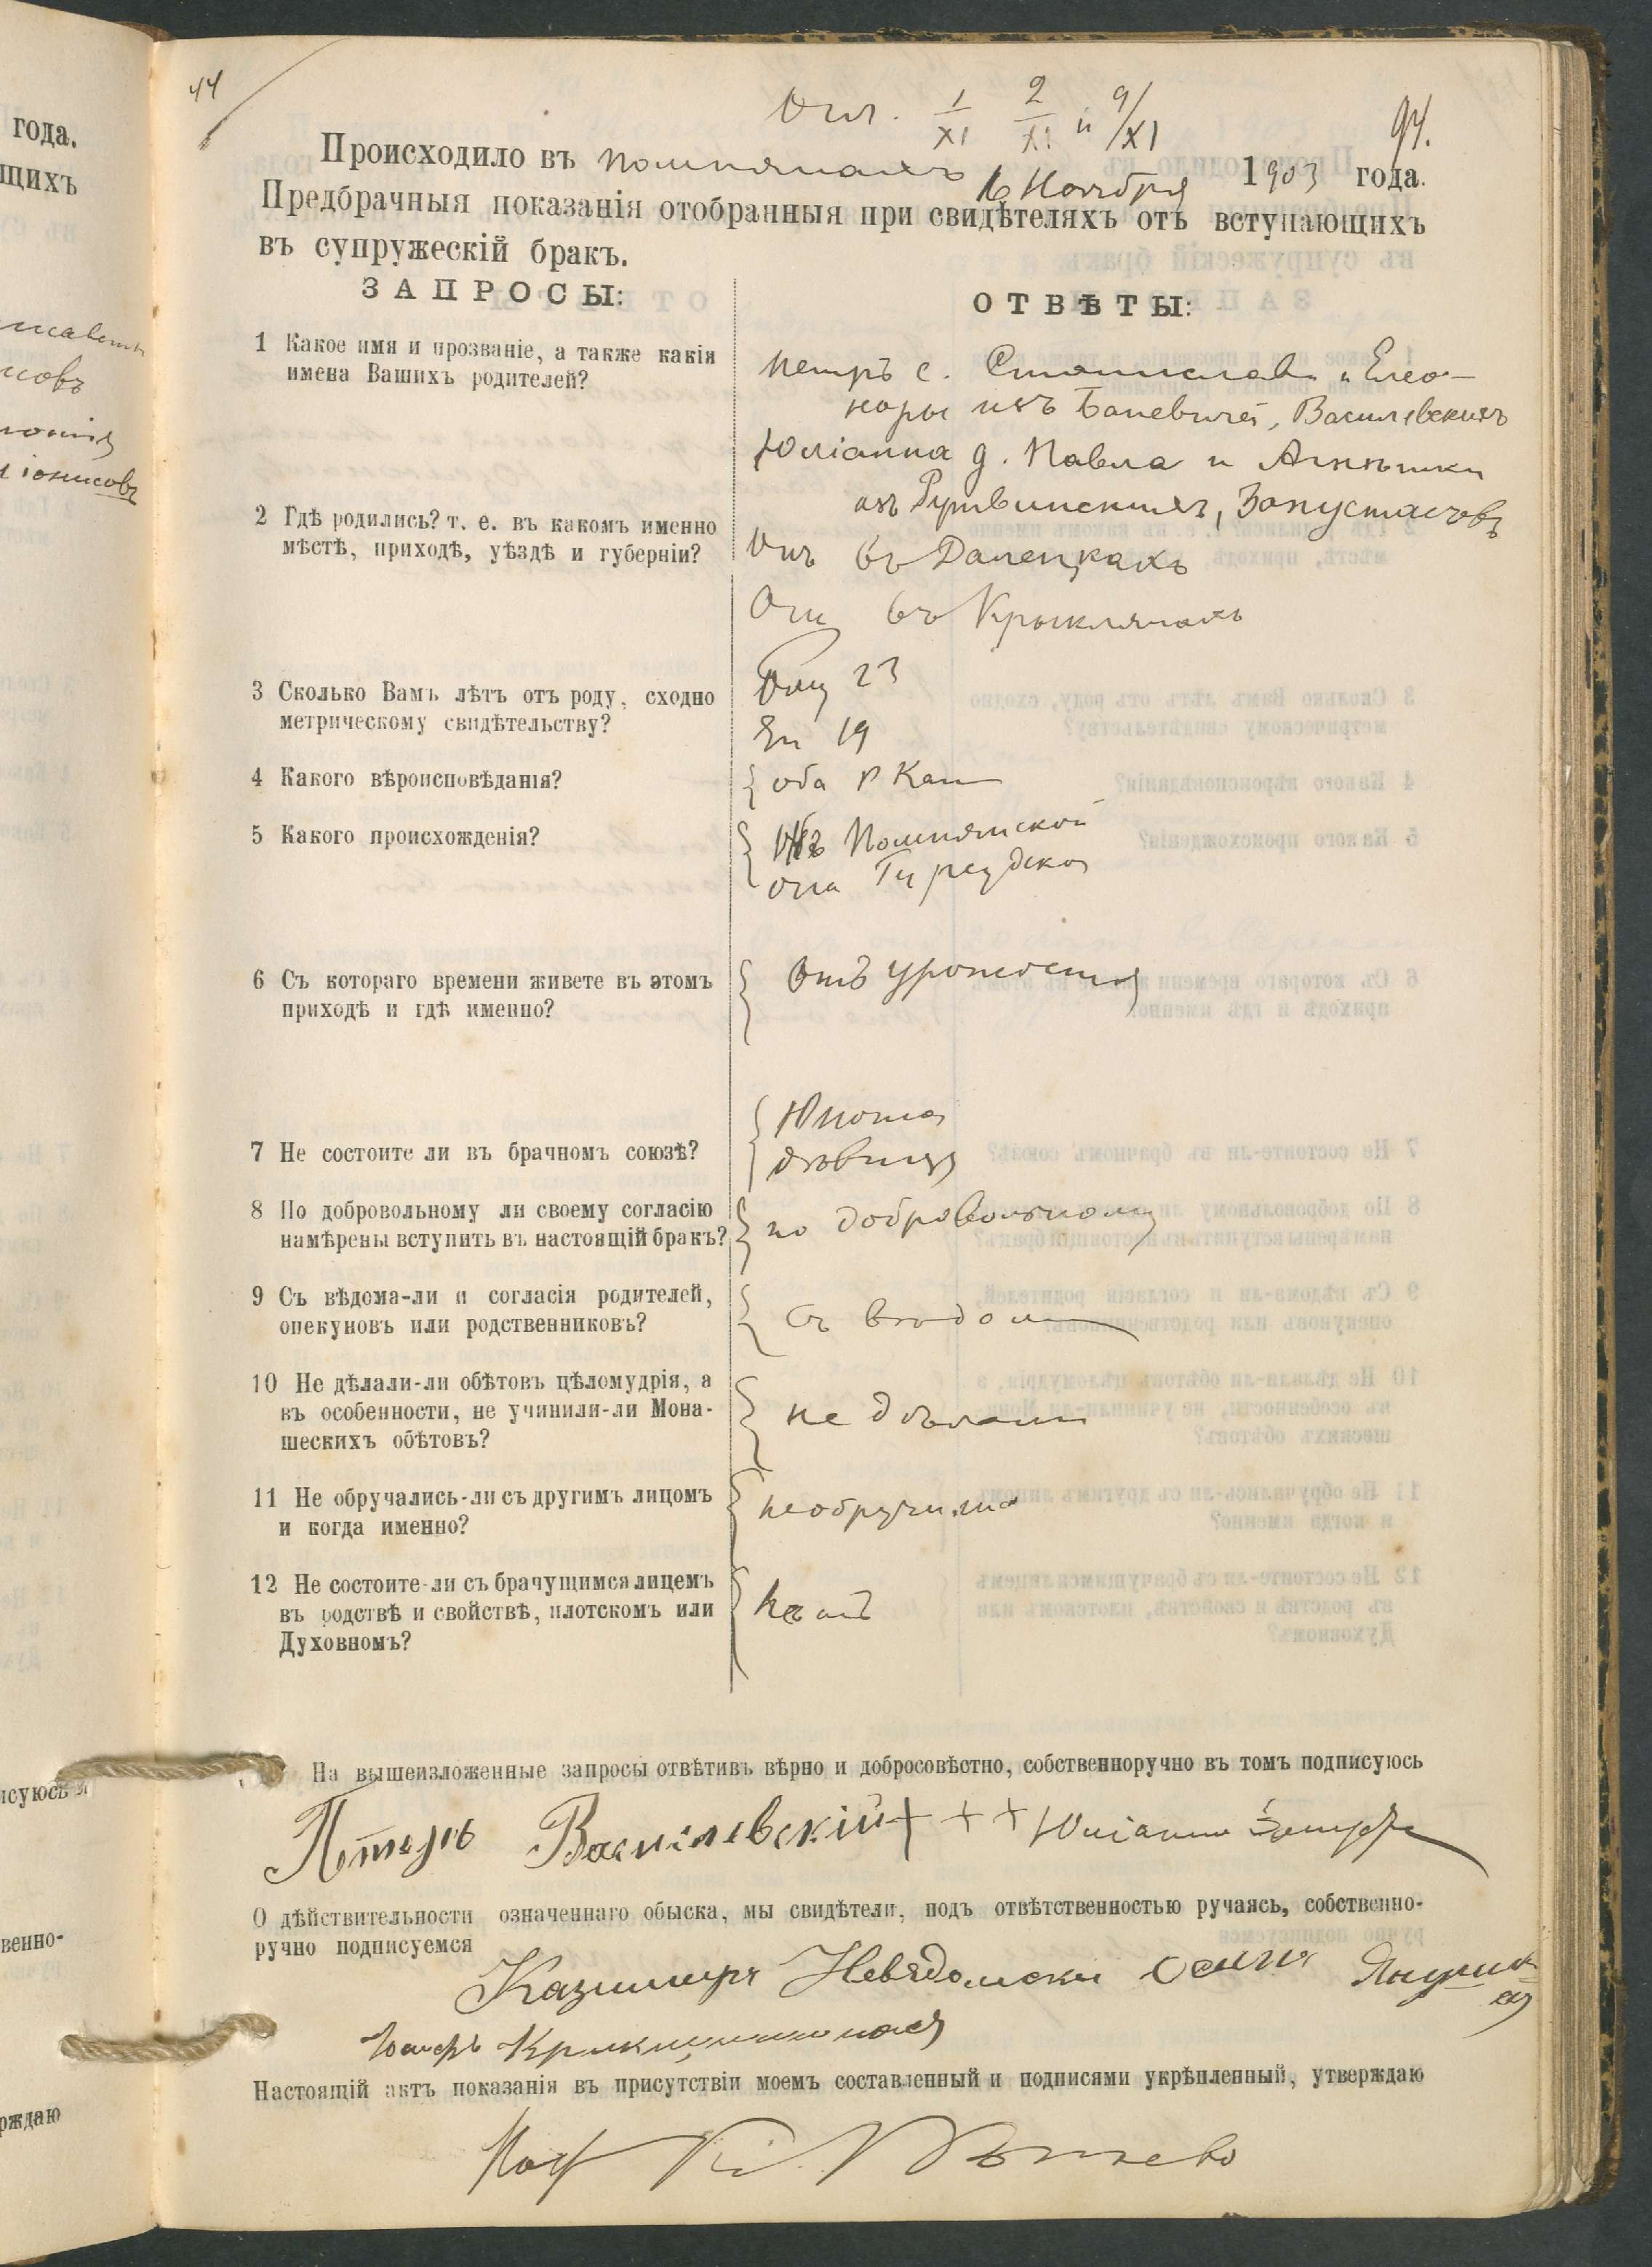 года.
щихъ
новъ
исуюсь
венно-
рждаю
44
Огл. 1/XI 2/XI и 9/XI
94.
Происходило въ Помпянахъ 16 Ноября 1903 года.
Предбрачныя показанія отобранныя при свидѣтеляхъ отъ вступающихъ
въ супружескій бракъ.
ЗАПРОСЫ:
ОТВѢТЫ:
1 Какое имя и прозваніе, а также какія
имена Вашихъ родителей?
Петръ с. Станислава и Елео-
норы изъ Баневичей, Василевскихъ
Юліанна д. Павла и Агнѣшки
изъ Рутвинскихъ, Запустасовъ
2 Гдѣ родились? т. е. въ какомъ именно
мѣстѣ, приходѣ, уѣздѣ и губерніи?
Онъ въ
Она въ Крыклянахъ
3 Сколько Вамъ лѣтъ отъ роду, сходно
метрическому свидѣтельству?
Ему 23
Ей 19
4 Какого вѣроисповѣданія?
оба Р Кат
5 Какого происхожденія?
Помпянской
она
6 Съ котораго времени живете въ этомъ
приходѣ и гдѣ именно?
Отъ урожденія
7 Не состоите ли въ брачномъ союзѣ?
Юноша
дѣвица
8 По добровольному ли своему согласію
намѣрены вступить въ настоящій бракъ?
по добровольному
9 Съ вѣдома-ли и согласія родителей,
опекуновъ или родственниковъ?
Съ вѣдома
10 Не дѣлали-ли обѣтовъ цѣломудрія, а
въ особенности, не учинили-ли Мона-
шескихъ обѣтовъ?
не дѣлали
11 Не обручались-ли съ другимъ лицомъ
и когда именно?
не обручились
12 Не состоите-ли съ брачущимся лицемъ
въ родствѣ и свойствѣ, плотскомъ или
Духовномъ?
Нѣтъ
На вышеизложенные запросы отвѣтивъ вѣрно и добросовѣстно, собственноручно въ томъ подписуюсь
Петръ Василевскій + + + Юліанна
О дѣйствительности означеннаго обыска, мы свидѣтели, подъ отвѣтственностью ручаясь, собственно-
ручно подписуемся
Казимиръ Невядомски Осипъ
Настоящій актъ показанія въ присутствіи моемъ составленный и подписями укрѣпленный, утверждаю